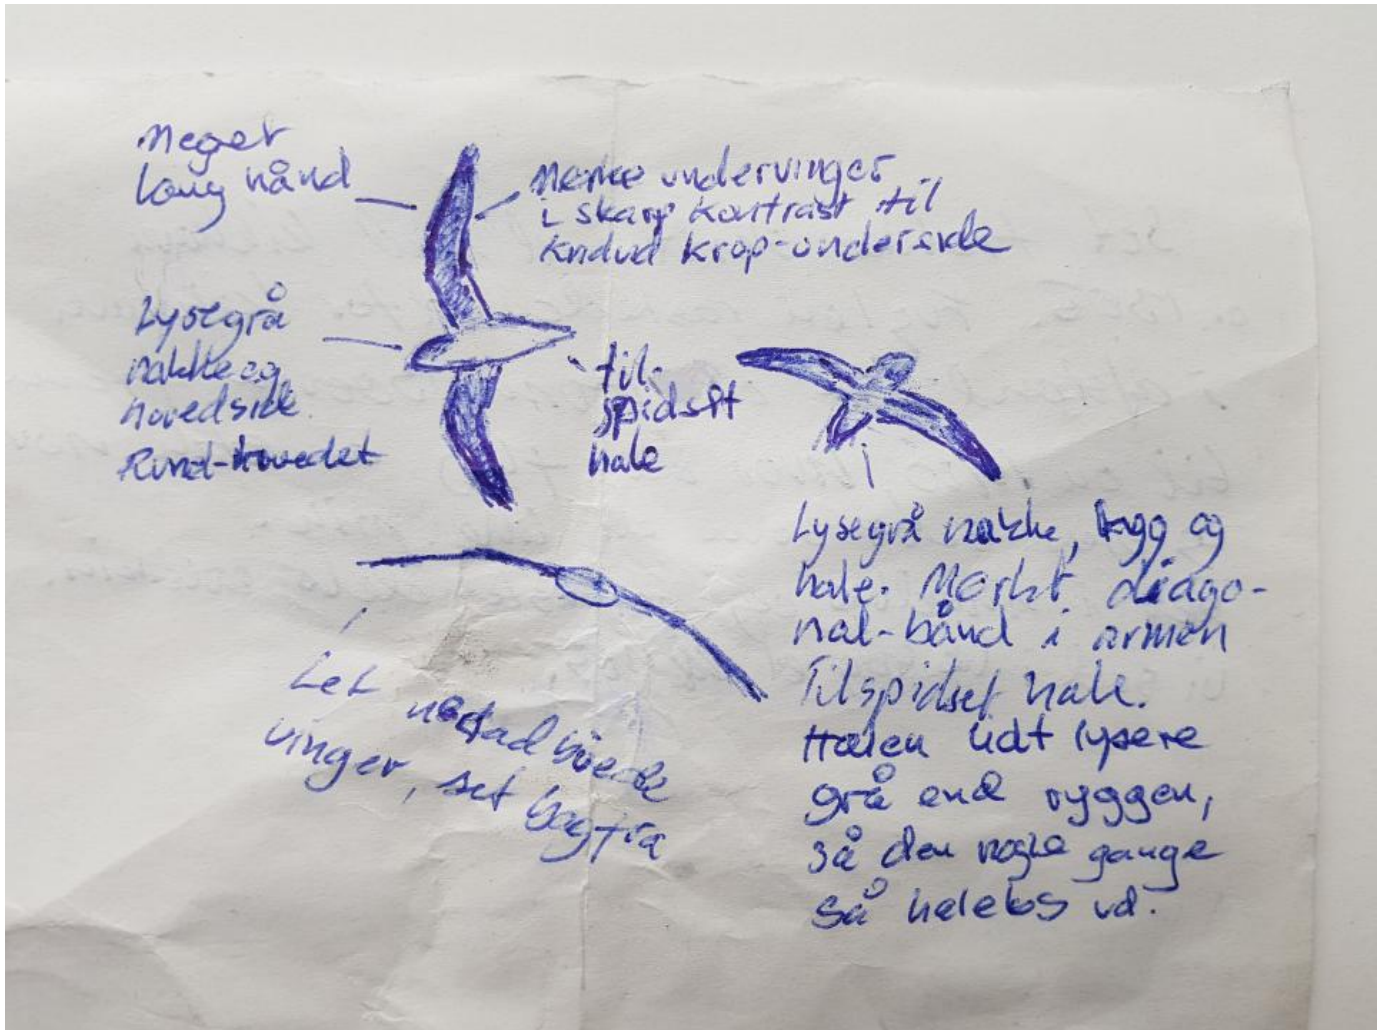 Meget
lang hånd
Mørke undervinger
i skarp kontrast til
kridhvid krop-underside
Lysegrå
nakke og
hovedside.
Rund-hovedet
til-
spidset
hale
Lysegrå nakke, ryg og
hale. Mørkt diago-
nal-bånd i armen
Tilspidset hale.
Halen lidt lysere
grå end ryggen,
så den nogle gange
så haleløs ud.
Let nedadbøjede
vinger, set bagfra